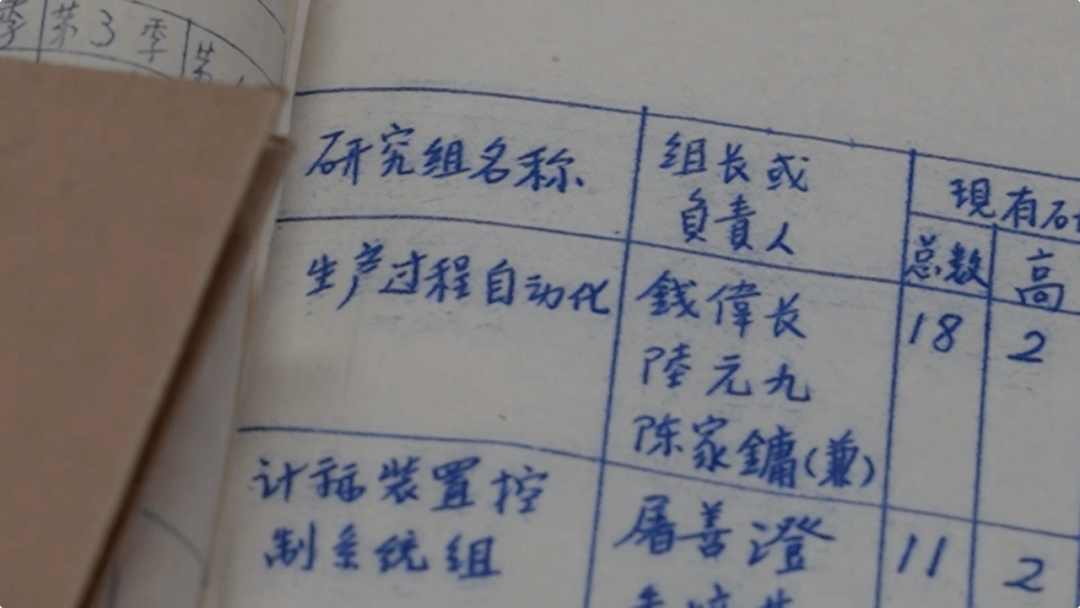 季 第3季 第
研究组名称
组长或
負責人
現有研
总数 高
生产过程自动化
錢偉長
陸元九
陈家鏞(兼)
18 2
计标装置控
制系统组
屠善澄
11 2